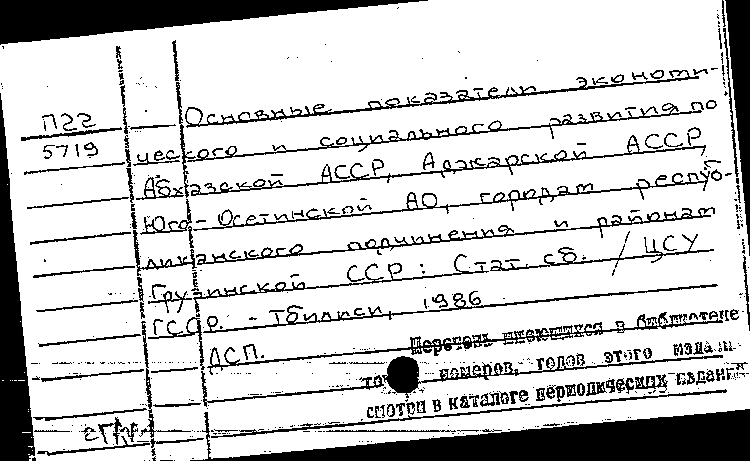 П22
5719
Основные показатели экономи-
ческого и социального развития по
Абхазской АССР, Аджарской АССР,
Юго-Осетинской АО, городам респуб-
ликанского подчинения и районам
Грузинской ССР: Стат. сб. / ЦСУ
ГССР. - Тбилиси, 1986
ДСП.
Перечень имеющихся в библиотеке
номеров, годов этого
смотри в каталоге периодических изданий